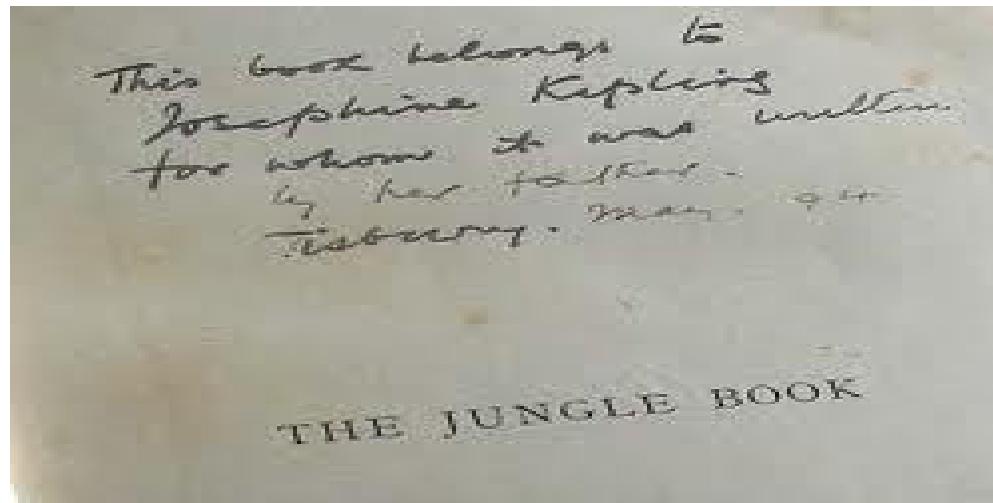 This book belongs to
Josephine Kipling
for whom it was written
by her father.
Tisbury. May. 94
THE JUNGLE BOOK